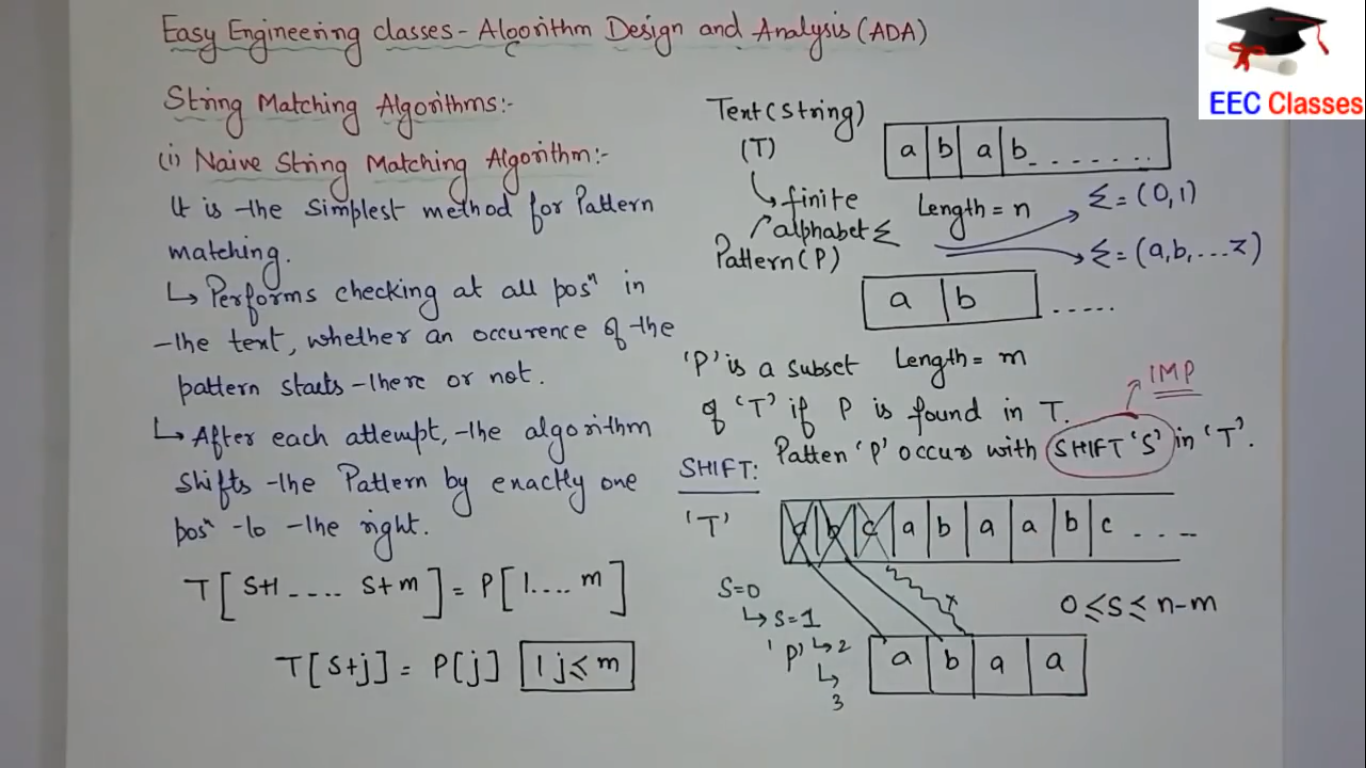 Easy Engineering classes - Algorithm Design and Analysis (ADA)
EEC Classes
String Matching Algorithms:-
(i) Naive String Matching Algorithm:-
It is the simplest method for Pattern
matching.
↳ Performs checking at all posⁿ in
the text, whether an occurence of the
pattern starts there or not.
↳ After each attempt, the algorithm
shifts the Pattern by exactly one
posⁿ to the right.
T[S+1 .... S+m] = P[1.... m]
T[S+j] = P[j] 1 j≤m
Text (String)
(T)
a b a b .......
↳ finite
alphabet Σ
Length = n
Σ = (0,1)
Σ = (a,b,...z)
Pattern (P)
a b .....
'P' is a subset Length = m
of 'T' if P is found in T.
IMP
Patten 'P' occurs with SHIFT 'S' in 'T'.
SHIFT:
'T' a b c a b a a b c ....
S=0
↳ S=1
0 ≤ S ≤ n-m
'P' ↳ 2
↳
3
a b a a